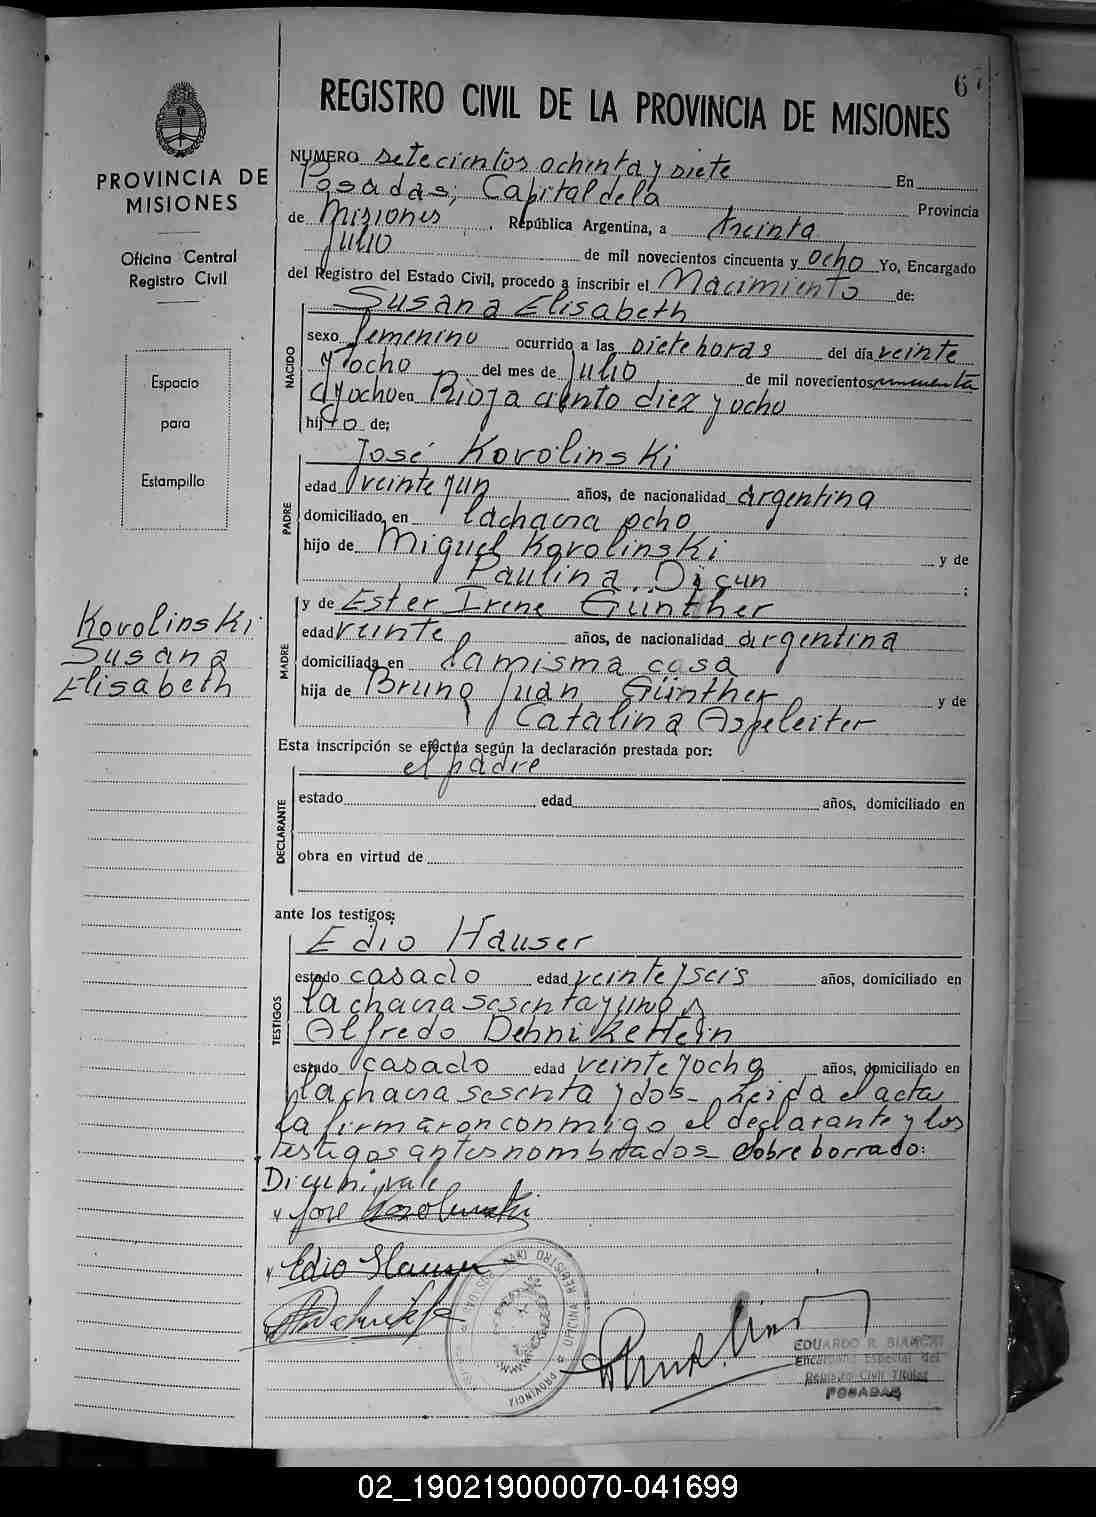 67
REGISTRO CIVIL DE LA PROVINCIA DE MISIONES
PROVINCIA DE
MISIONES
Oficina Central
Registro Civil
Espacio
para
Estampilla
Korolinski
Susana
Elisabeth
NUMERO setecientos ochenta y siete En
Posadas, Capital de la Provincia
de Misiones, República Argentina, a treinta
Julio de mil novecientos cincuenta y ocho Yo, Encargado
del Registro del Estado Civil, procedo a inscribir el Nacimiento de:
NACIDO
Susana Elisabeth
sexo femenino ocurrido a las siete horas del día veinte
y ocho del mes de Julio de mil novecientos cincuenta
y ocho en Rioja ciento diez y ocho
hija de;
PADRE
José Korolinski
edad veinte y un años, de nacionalidad argentina
domiciliado en la chacra ocho
hijo de Miguel Korolinski y de
Paulina Dicun ;
MADRE
y de Ester Irene Günther
edad veinte años, de nacionalidad argentina
domiciliada en la misma casa
hija de Bruno Juan Günther y de
Catalina Aspeleiter
Esta inscripción se efectúa según la declaración prestada por:
el padre
DECLARANTE
estado edad años, domiciliado en
obra en virtud de
ante los testigos:
TESTIGOS
Edio Hauser
estado casado edad veinte y seis años, domiciliado en
la chacra sesenta y uno y
Alfredo
estado casado edad veinte y ocho años, domiciliado en
la chacra sesenta y dos_ Leida el acta
la firmaron conmigo el declarante y los
testigos antes nombrados_ Sobre borrado:
Dicun, vale
José Korolinski
Edio Hauser
OFICINA REGISTRO CIVIL
PROVINCIA
EDUARDO R. BIANCHI
Encargado Especial del
Registro Civil Titular
POSADAS
02_190219000070-041699